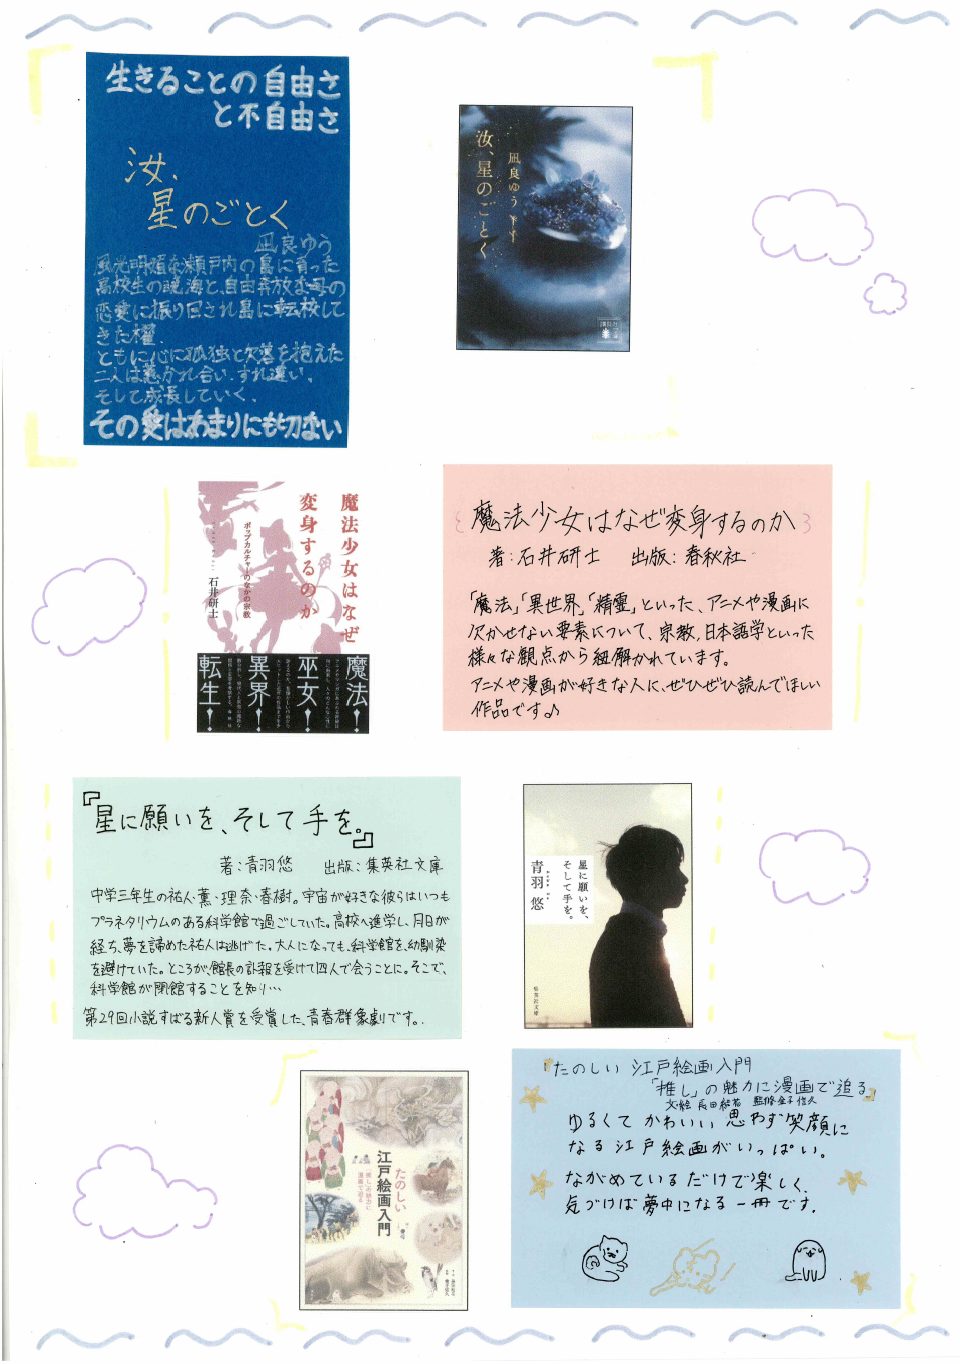 生きることの自由さ
と不自由さ
汝、
星のごとく
凪良ゆう
風光明媚な瀬戸内の島に育った
高校生の暁海と、自由奔放な母の
恋愛に振り回され島に転校して
きた櫂。
ともに心に孤独と欠落を抱えた
二人は惹かれ合い、すれ違い、
そして成長していく。
その愛はあまりにも切ない
汝、星のごとく
凪良ゆう
講談社
魔法少女はなぜ
変身するのか
ポップカルチャーのなかの宗教
石井研士
魔法!
巫女!
異界!
転生!
魔法少女はなぜ変身するのか
著:石井研士 出版:春秋社
「魔法」「異世界」「精霊」といった、アニメや漫画に
欠かせない要素について、宗教,日本語学といった
様々な観点から紐解かれています。
アニメや漫画が好きな人に、ぜひぜひ読んでほしい
作品です♪
『星に願いを、そして手を。』
著:青羽悠 出版:集英社文庫
中学三年生の祐人・薫・理奈・春樹。宇宙が好きな彼らはいつも
プラネタリウムのある科学館で過ごしていた。高校へ進学し、月日が
経ち、夢を諦めた祐人は逃げた。大人になっても、科学館を、幼馴染
を避けていた。ところが、館長の訃報を受けて四人で会うことに。そこで、
科学館が閉館することを知り…
第29回小説すばる新人賞を受賞した、青春群像劇です。
星に願いを、
そして手を。
青羽 悠
集英社文庫
たのしい
江戸絵画入門
「推し」の魅力に
漫画で迫る
『たのしい 江戸絵画入門
「推し」の魅力に漫画で迫る』
文・絵 長田結花 監修 金子信久
ゆるくて かわいい 思わず笑顔に
なる江戸絵画がいっぱい。
ながめているだけで楽しく、
気づけば夢中になる一冊です。